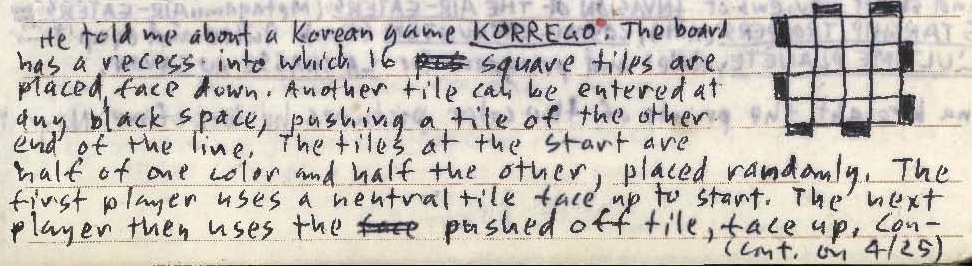 He told me about a Korean game KORREGO. The board
has a recess into which 16 square tiles are
placed face down. Another tile can be entered at
any black space, pushing a tile of the other
end of the line. The tiles at the start are
half of one color and half the other, placed randomly. The
first player uses a neutral tile face up to start. The next
player then uses the face pushed off tile, face up. Con-
(cont. on 4/25)